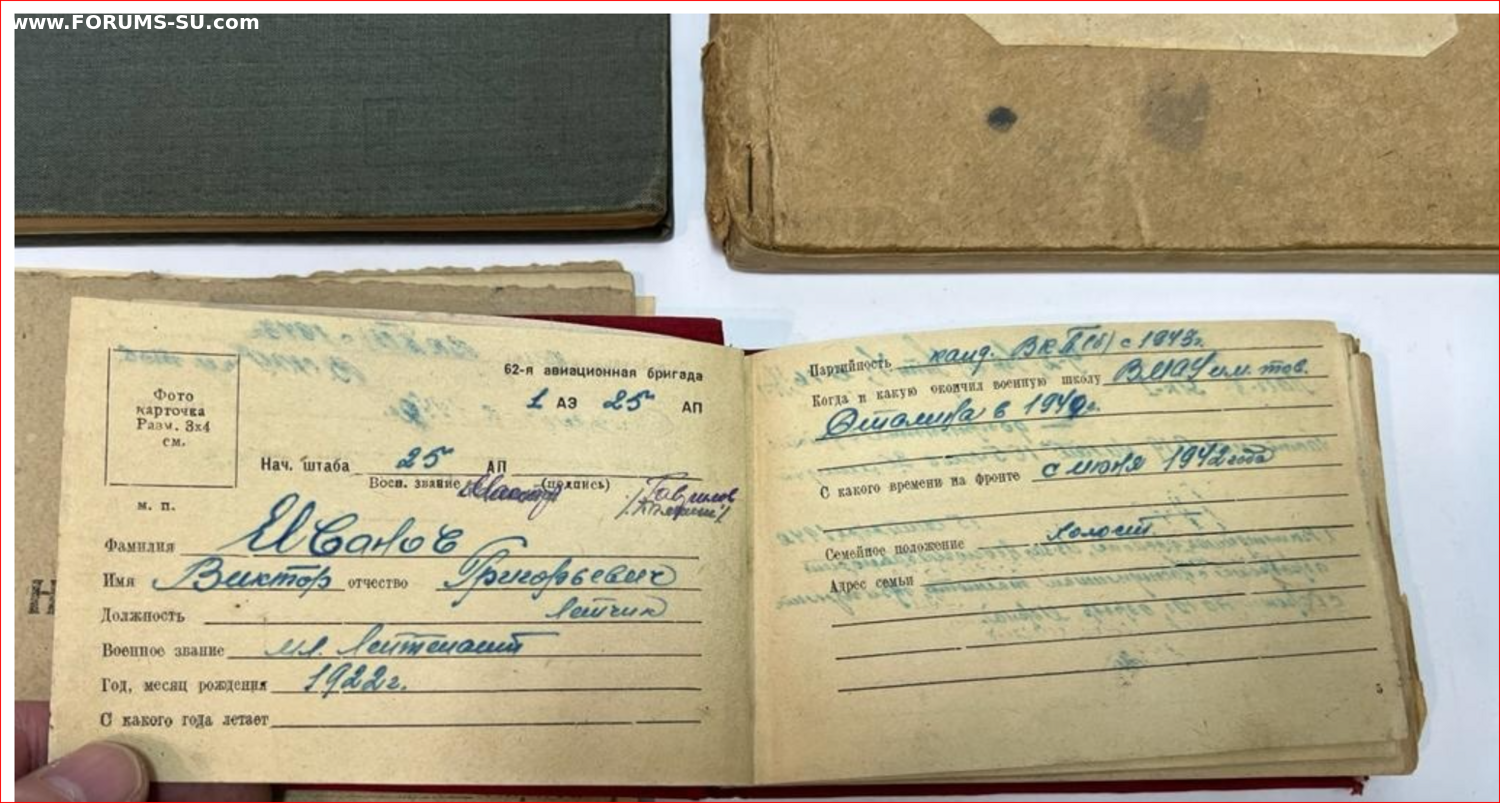 www.FORUMS-SU.com
Фото
карточка
Разм. 3х4
см.
м. п.
62-я авиационная бригада
1 АЭ 25 АП
Нач. штаба 25 АП
Воен. звание (подпись)
Гаврилов
Фамилия Иванов
Имя Виктор отчество Григорьевич
Должность летчик
Военное звание мл. лейтенант
Год, месяц рождения 1922 г.
С какого года летает
Партийность канд. ВКП(б) с 1943г.
Когда и какую окончил военную школу ВМАУ им. тов.
Сталина в 1940г.
С какого времени на фронте с июня 1942 года
Семейное положение холост.
Адрес семьи
5
Н